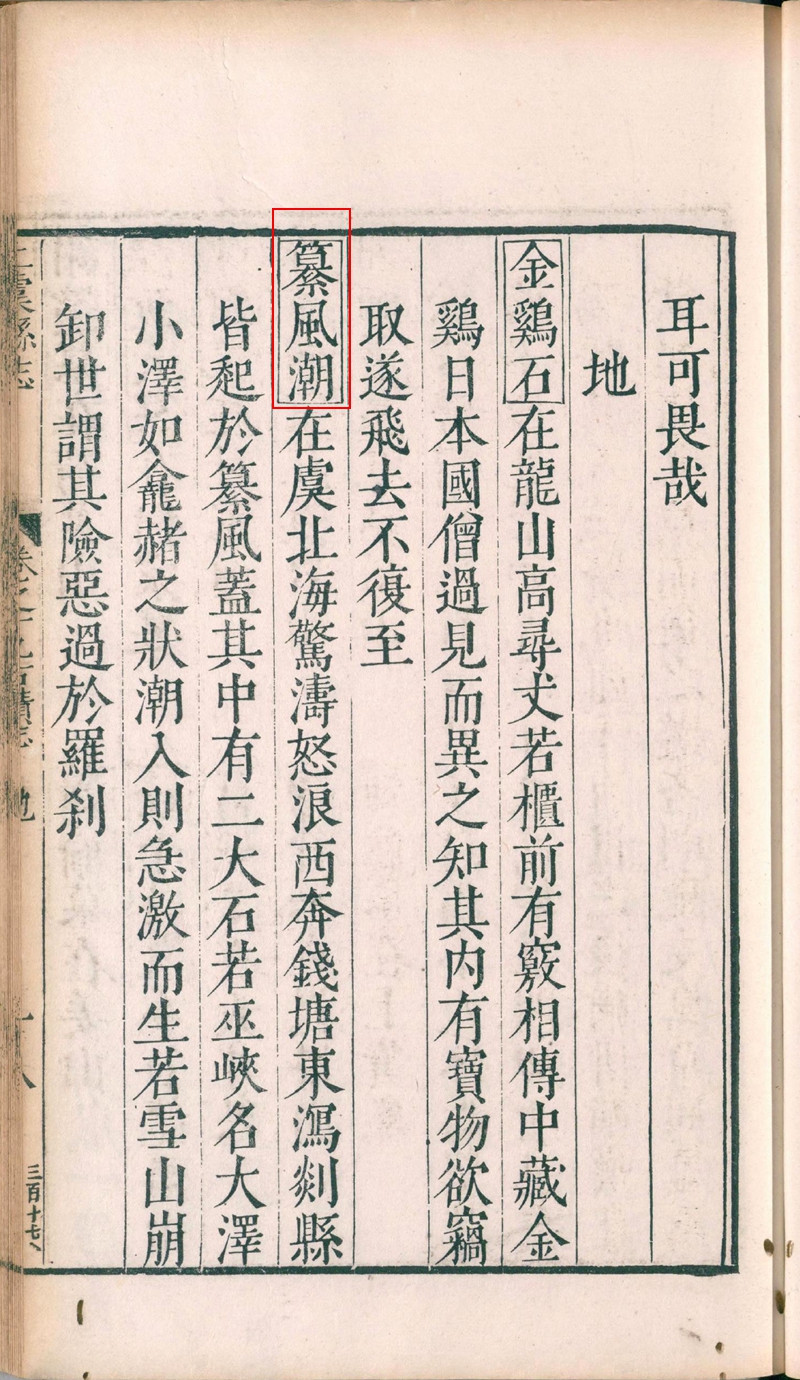 耳可畏哉
地
金鷄石在龍山高尋丈若櫃前有竅相傳中藏金
鷄日本國僧過見而異之知其内有寶物欲竊
取遂飛去不復至
纂風潮在虞北海驚濤怒浪西奔錢塘東瀉剡縣
皆起於纂風蓋其中有二大石若巫峽名大澤
小澤如龕赭之狀潮入則急激而生若雪山崩
卸世謂其險惡過於羅刹
虞縣志
卷之十九古蹟志
地
三百十七